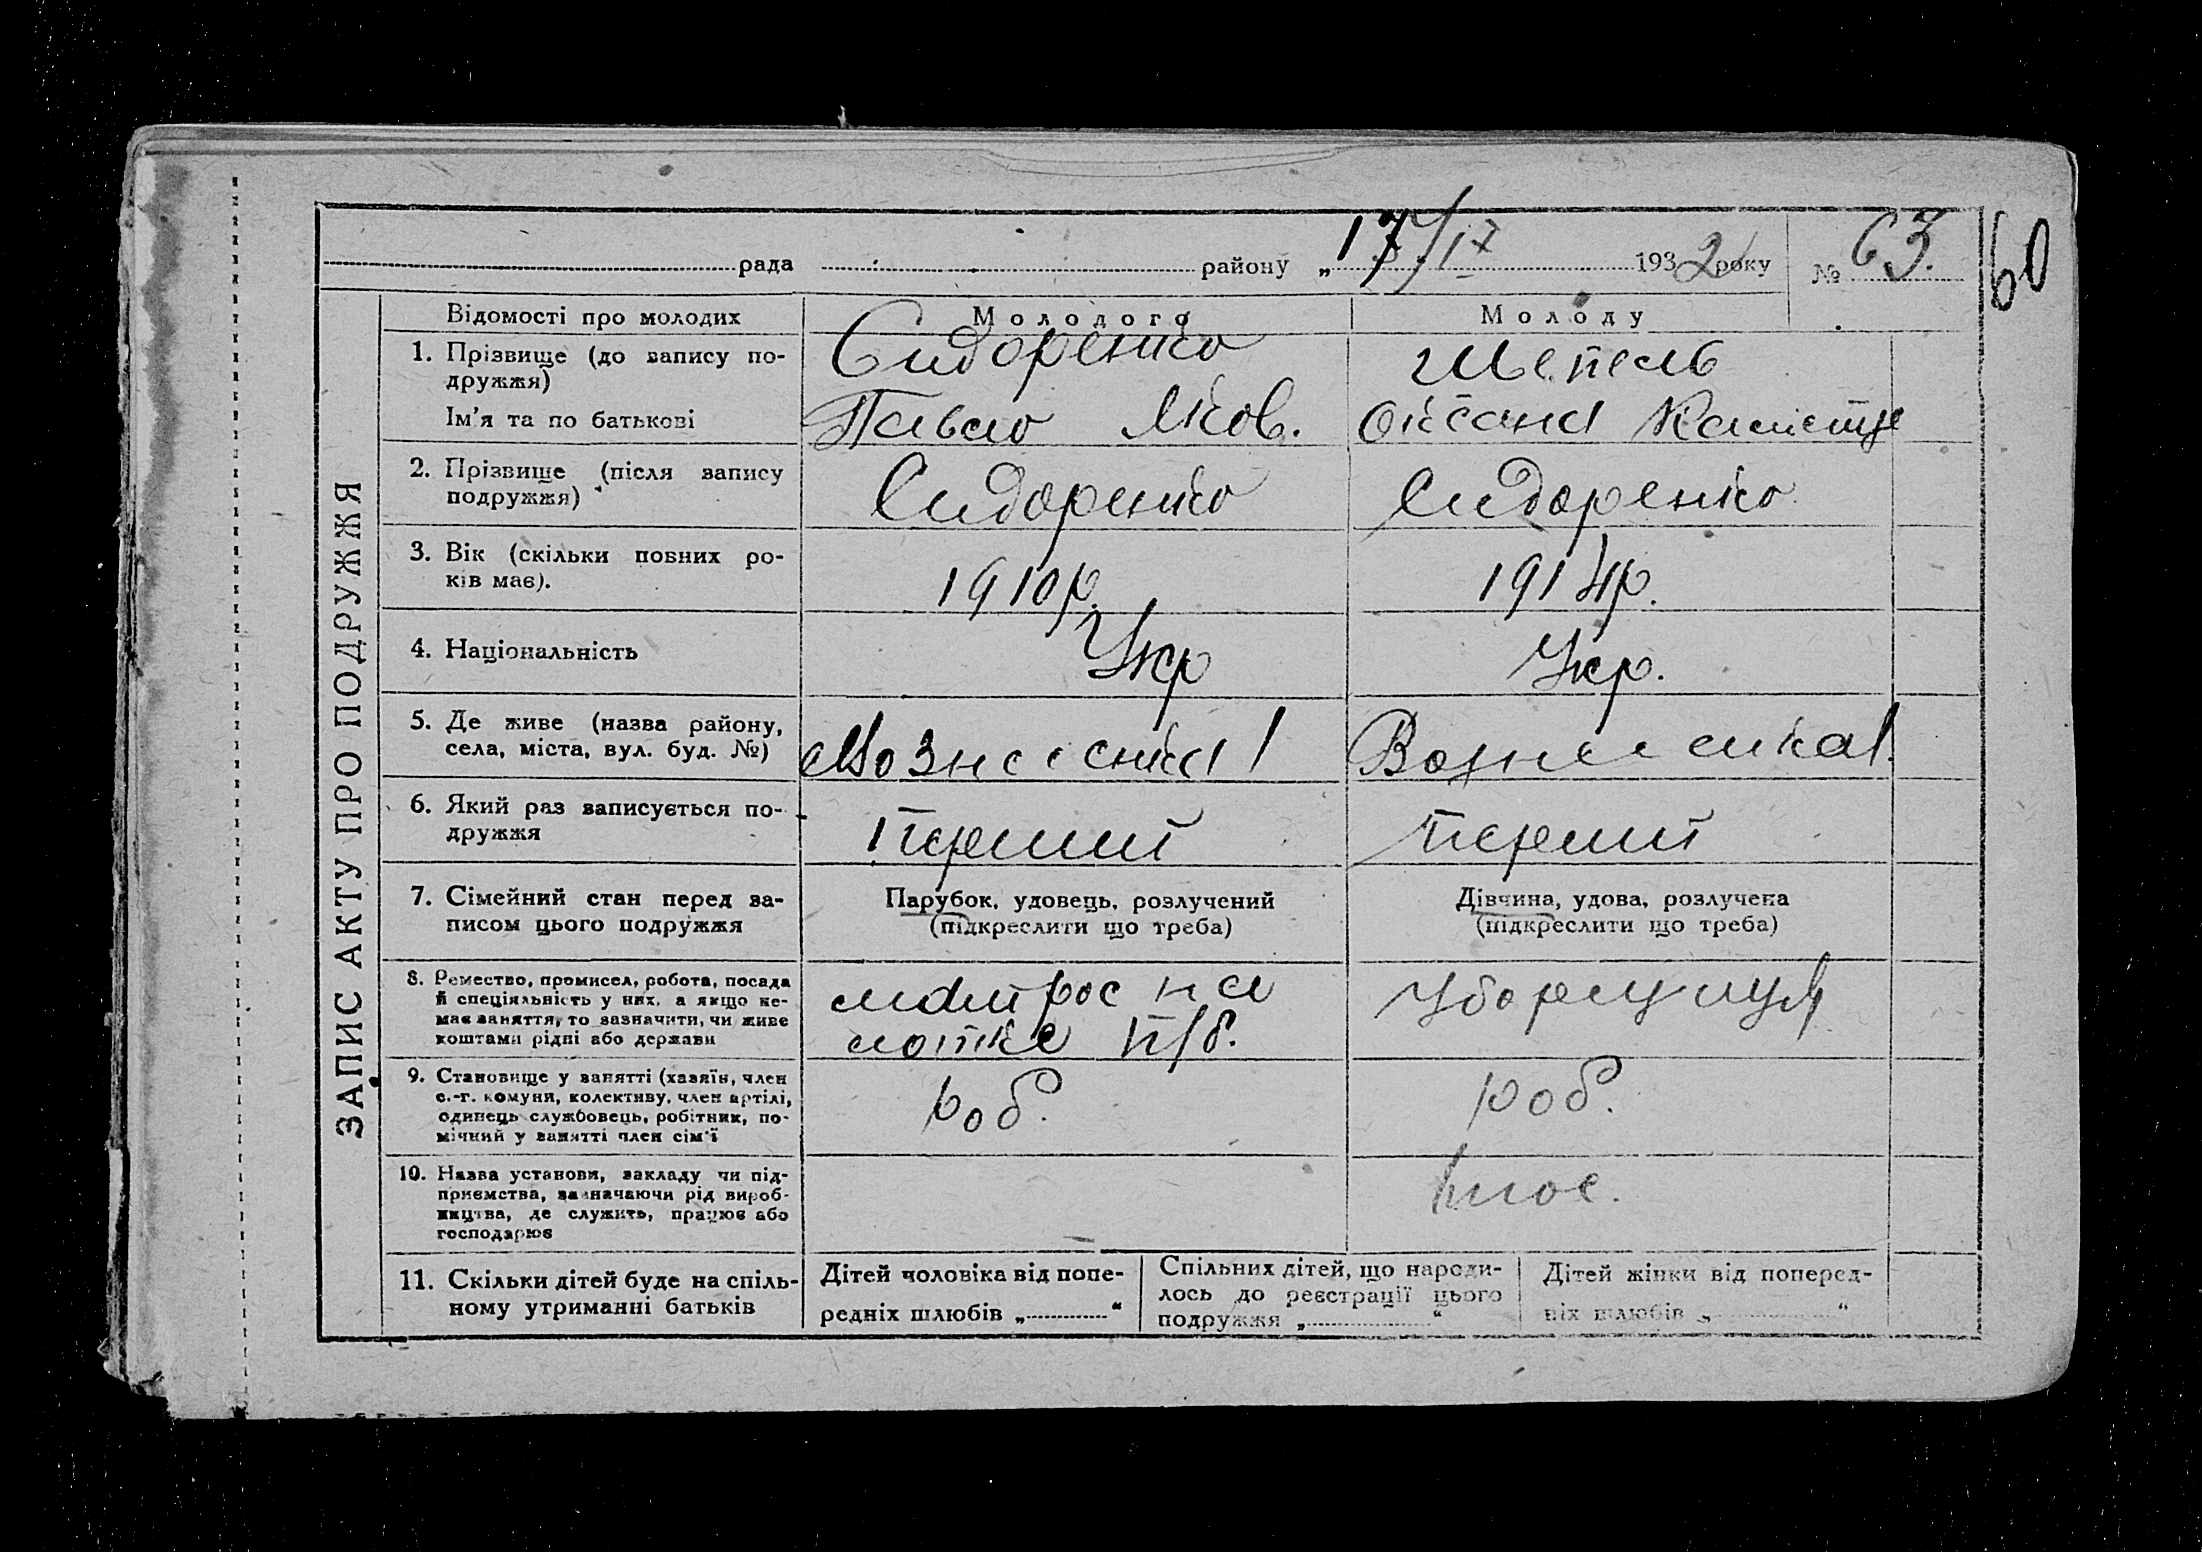 рада району „ 17/IV 1932 року № 63.
60
ЗАПИС АКТУ ПРО ПОДРУЖЖЯ
Відомості про молодих
Молодого
Молоду
1. Прізвище (до запису по-
дружжя)
Ім'я та по батькові
Сидоренко
Павло Яков.
Шепель
Оксана
2. Прізвище (після запису
подружжя)
Сидоренко
Сидоренко
3. Вік (скільки повних ро-
ків має).
1910р.
1914р.
4. Національність
Укр
Укр.
5. Де живе (назва району,
села, міста, вул. буд. №)
Вознесенка
Вознесенка
6. Який раз записується по-
дружжя
перший
перший
7. Сімейний стан перед за-
писом цього подружжя
Парубок, удовець, розлучений
(підкреслити що треба)
Дівчина, удова, розлучена
(підкреслити що треба)
8. Ремество, промисел, робота, посада
й спеціяльність у них, а якщо не-
має заняття, то зазначити, чи живе
коштами рідні або держави
матрос на
лотке п/б.
Уборщиця
9. Становище у занятті (хазяїн, член
с.-г. комуни, колективу, член артілі,
одинець службовець, робітник, по-
мічний у занятті член сім'ї
роб.
роб.
10. Назва установи, закладу чи під-
приємства, зазначаючи рід вироб-
ництва, де служить, працює або
господарює
11. Скільки дітей буде на спіль-
ному утриманні батьків
Дітей чоловіка від попе-
редніх шлюбів „ “
Спільних дітей, що народи-
лось до реєстрації цього
подружжя „ “
Дітей жінки від поперед-
ніх шлюбів „ “